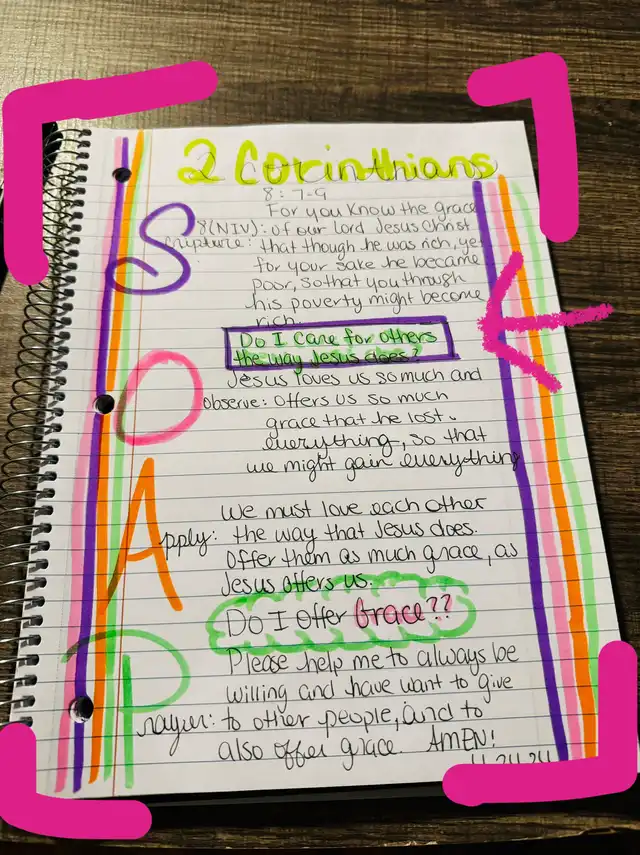 2 Corinthians
8: 7-9
For you know the grace
8(NIV): of our Lord Jesus Christ
Scripture: that though he was rich, yet
for your sake he became
poor, so that you through
his poverty might become
rich.
Do I care for others
the way Jesus does?
Jesus loves us so much and
Observe: offers us so much
grace that he lost
everything, so that
we might gain everything
We must love each other
Apply: the way that Jesus does.
Offer them as much grace, as
Jesus offers us.
Do I offer Grace??
Please help me to always be
willing and have want to give
Prayer: to other people, and to
also offer grace. AMEN!